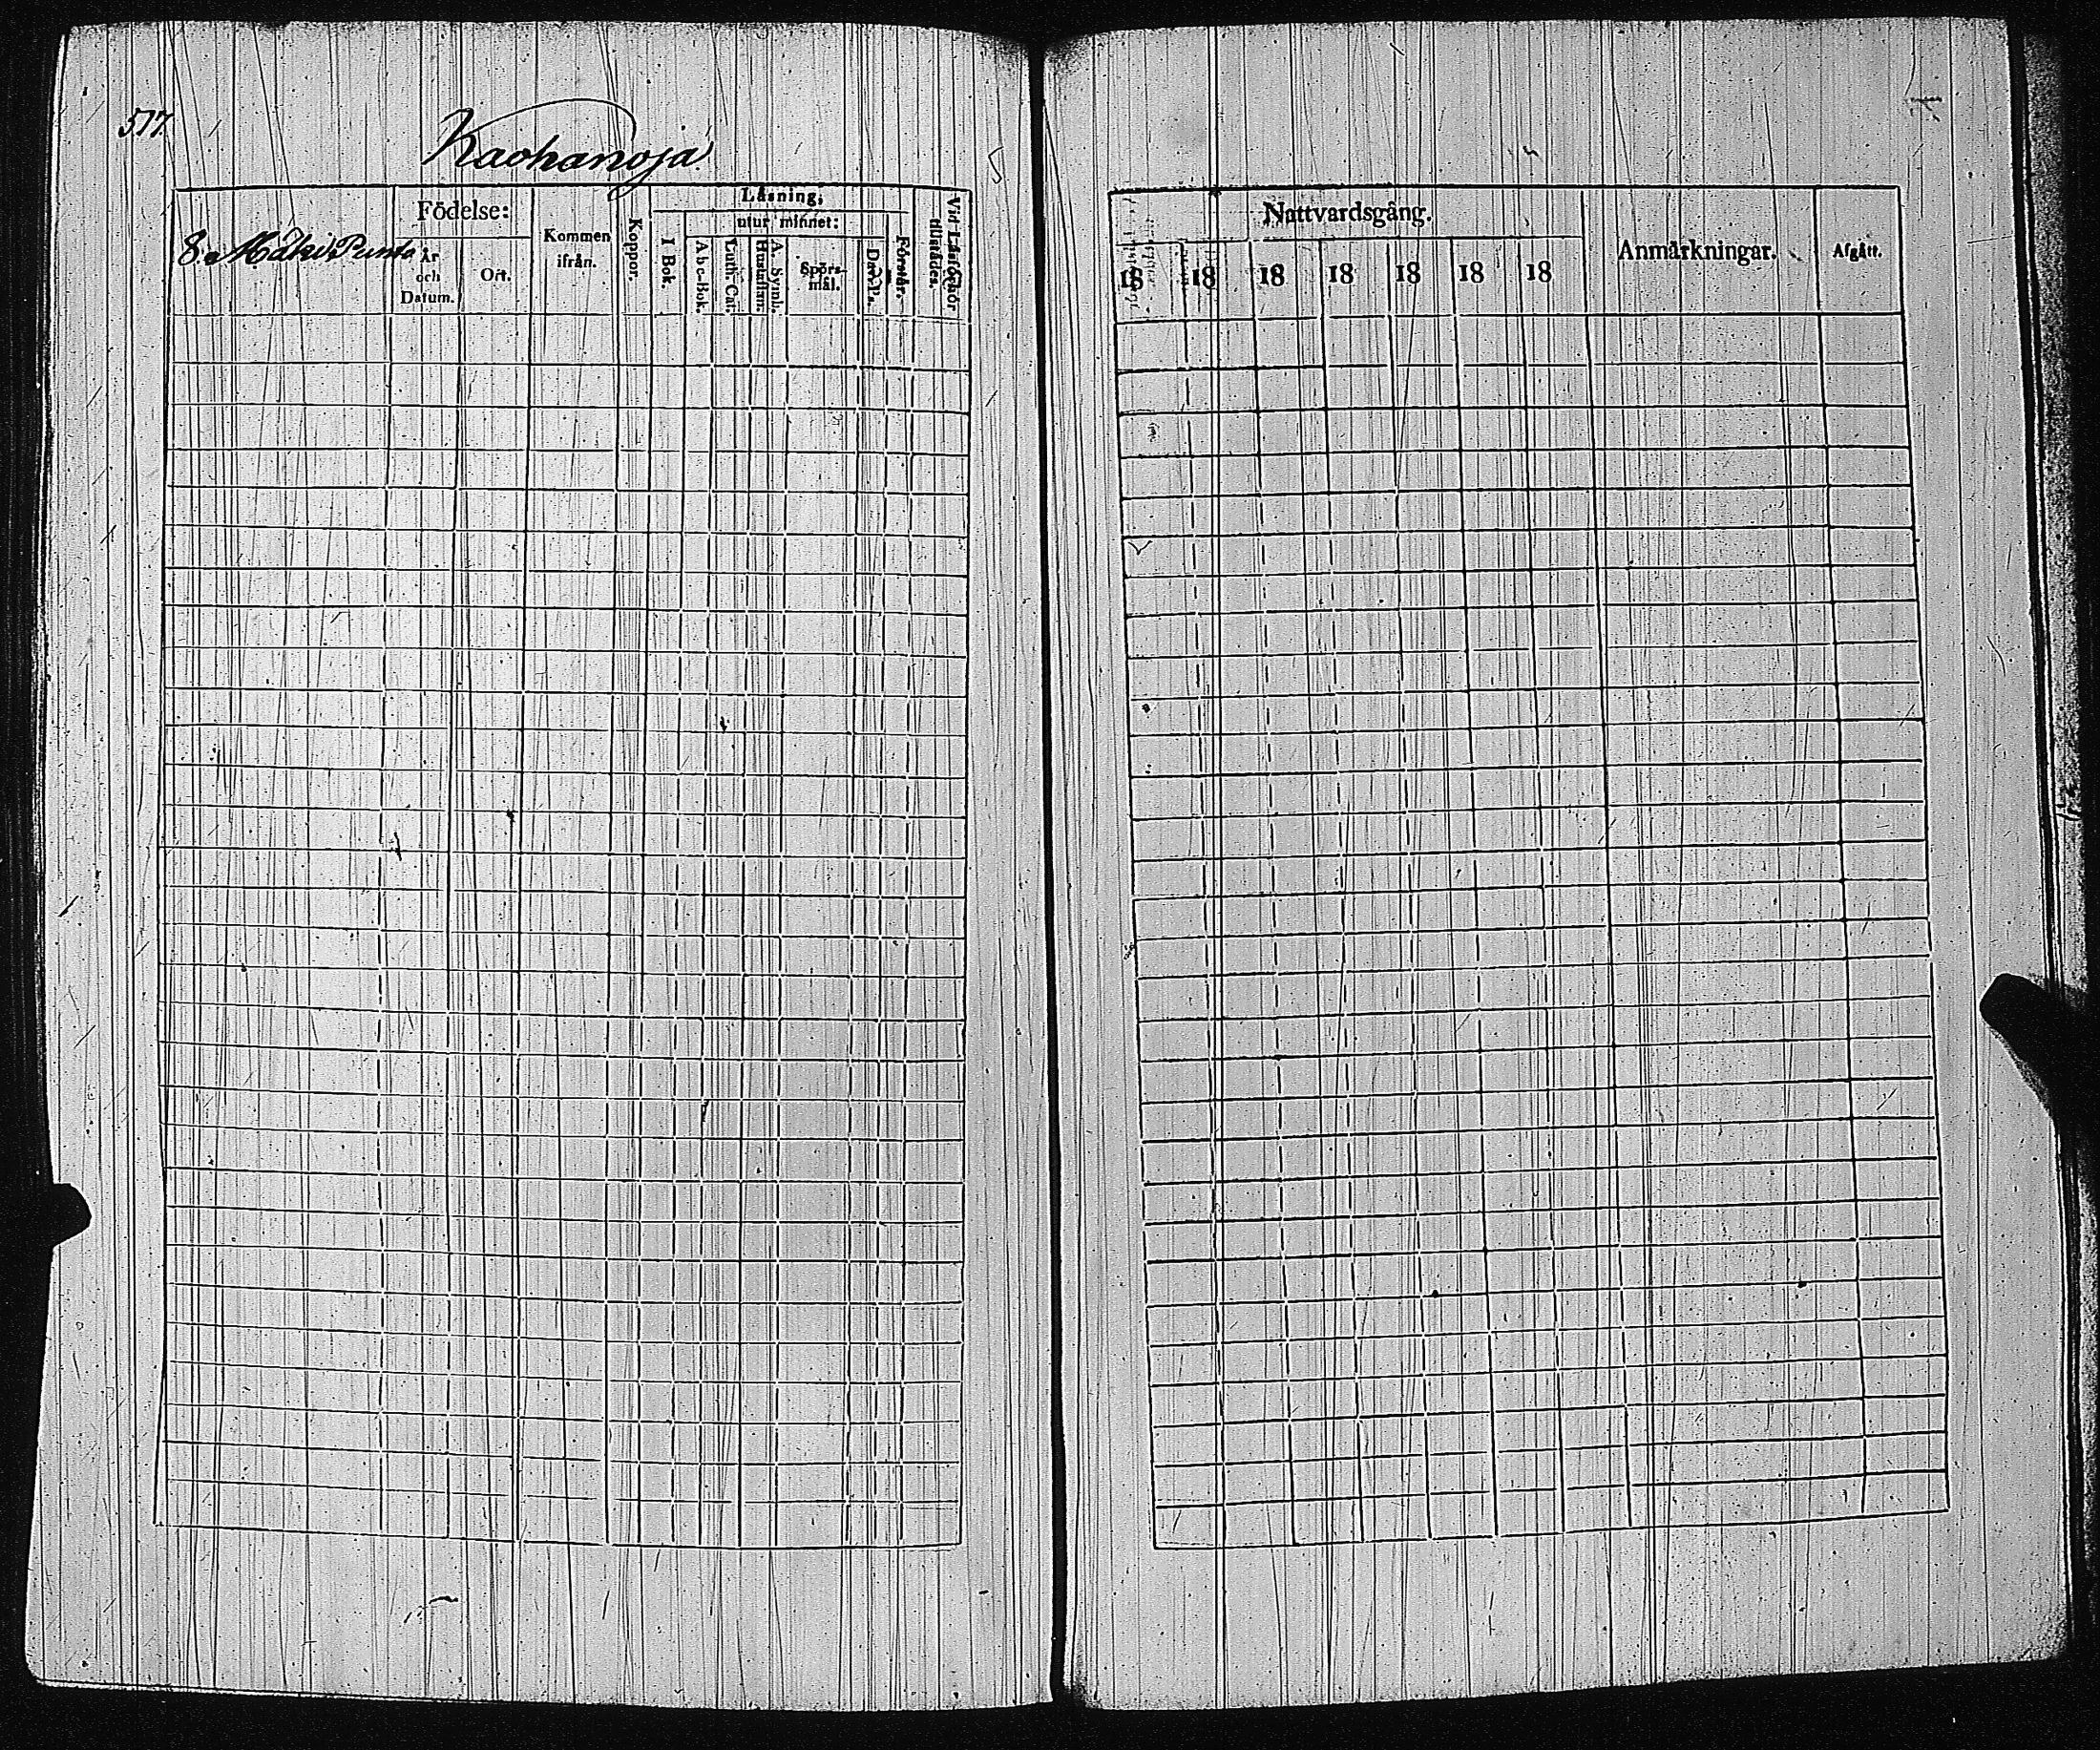 577.
Kaohanoja
8. Mäki Punta
Födelse:
År
och
Datum.
Ort.
Kommen
ifrån.
Koppor.
Läsning,
utur minnet:
I Bok.
Abc-Bok.
Luth. Cat.
Hustaflan.
A. Symb.
Spörs-
mål.
Dav. Ps.
Förstår.
Vid Läsförhör
tillstådes.
Nattvardsgång.
18 18 18 18 18 18 18
Anmärkningar.
Afgått.